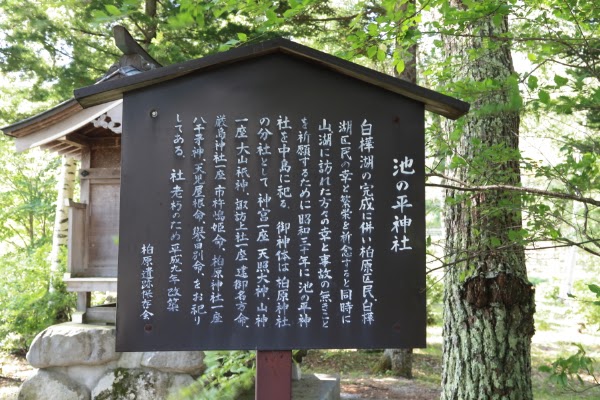 池の平神社
白樺湖の完成に伴い柏原区民、白樺
湖区民の幸と繁栄を祈念すると同時に
山湖に訪れた方々の幸と事故の無きこと
を祈願するために昭和三十年に池の平神
社を中島に祀る。御神体は柏原神社
の分社として、神宮一座天照大神、山神
一座、大山祇神、諏訪上社一座、建御名方命、
厳島神社一座、市杵嶋姫命、柏原神社一座
八千矛神、天児屋根命、誉田別命、をお祀り
してある。社老朽のため平成九年改築
柏原遺跡保存会